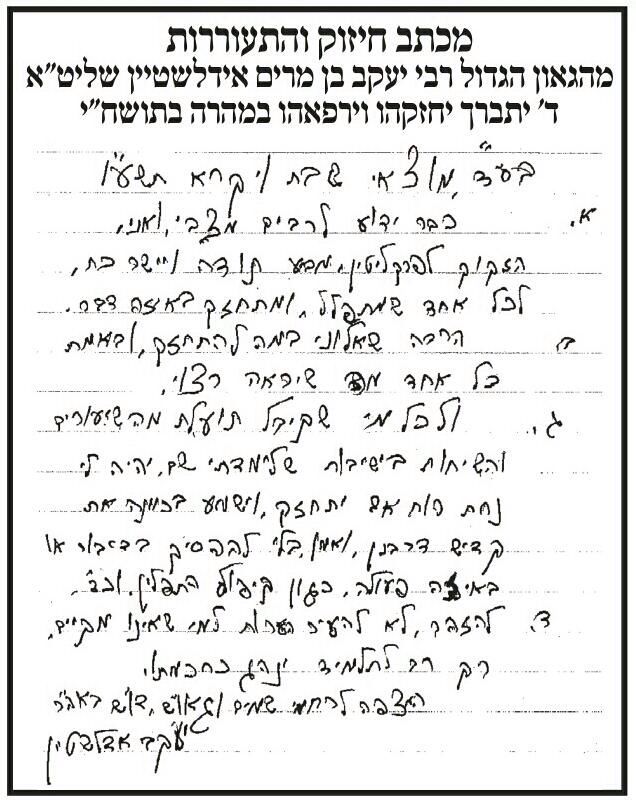 מכתב חיזוק והתעוררות
מהגאון הגדול רבי יעקב בן מרים אידלשטיין שליט״א
ד׳ יתברך יחזקהו וירפאהו במהרה בתושח״י
בס״ד, מוצאי שבת ויקרא תשע״ו
א. כבר ידוע לרבים מצבי, ואני,
הזקוק לפרקליטין, מביע תודה ויישר כח,
לכל אחד שמתפלל, ומתחזק באיזה דבר.
ב הרבה שאלוני במה להתחזק, ובאמת
כל אחד מה שיראה רצוי,
ג. ולכל מי שקיבל תועלת מהשיעורים
והשיחות בישיבות שלימדתי שם, יהיה לי
נחת רוח אם יתחזק, וישמע בכוונה את
קדיש דרבנן, ואמן, בלי להפסיק בדיבור או
באיזה פעולה, כגון קיפול התפלין, וכד׳.
ד. להזהר, לא להעיר הערות למי שאינו מקיים,
רק רב לתלמיד ינהג כחכמתו.
המצפה לרחמי שמים
יעקב אדלשטין